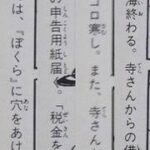 海終わる。寺さんからの借
コロ寒し。また、寺さん
の申告用紙届。「税金を
は、『ぼくら』に穴をあけ